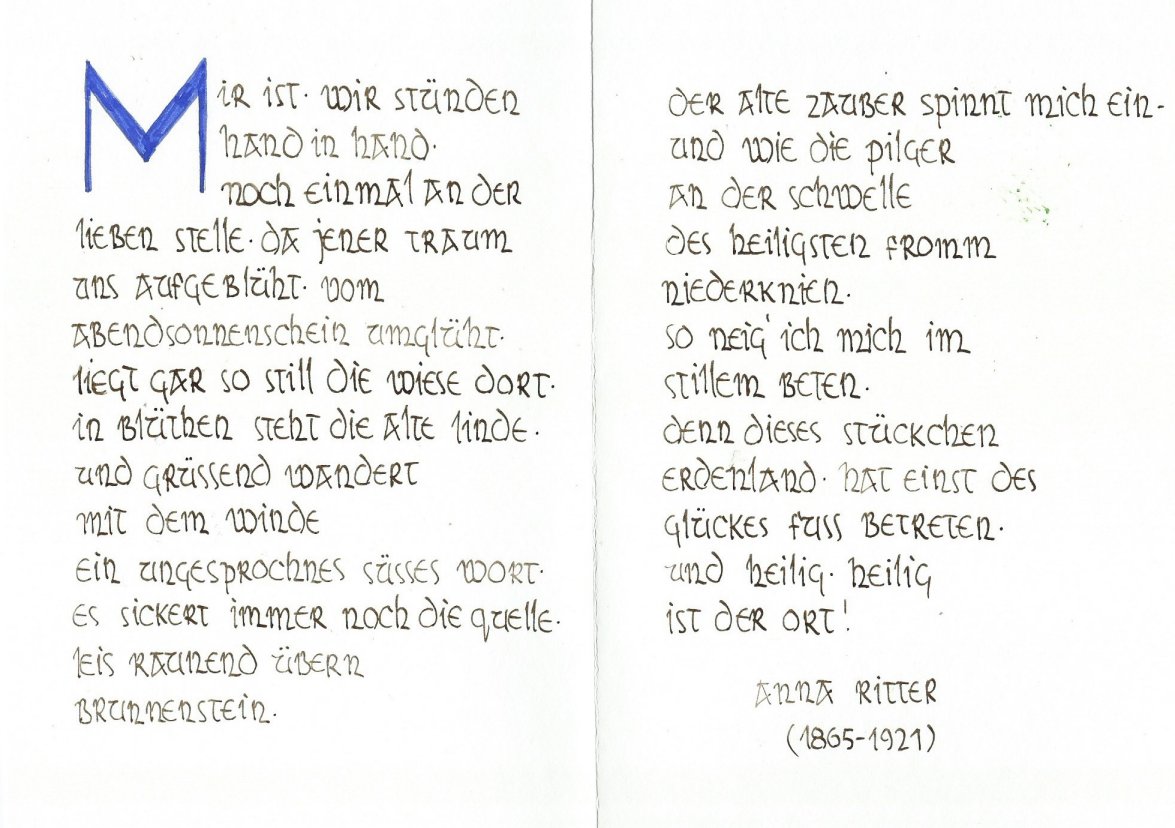 Mir ist · wir stünden
hand in hand ·
noch einmal an der
lieben stelle · da jener traum
uns aufgeblüht · vom
abendsonnenschein umglüht ·
liegt gar so still die wiese dort ·
in blüthen steht die alte linde ·
und grüssend wandert
mit dem winde
ein ungesprochnes süsses wort ·
es sickert immer noch die quelle ·
leis raunend übern
brunnenstein ·
der alte zauber spinnt mich ein -
und wie die pilger
an der schwelle
des heiligsten fromm
niederknien ·
so neig' ich mich im
stillem beten ·
denn dieses stückchen
erdenland · hat einst des
glückes fuss betreten ·
und heilig · heilig
ist der ort!
anna ritter
(1865-1921)